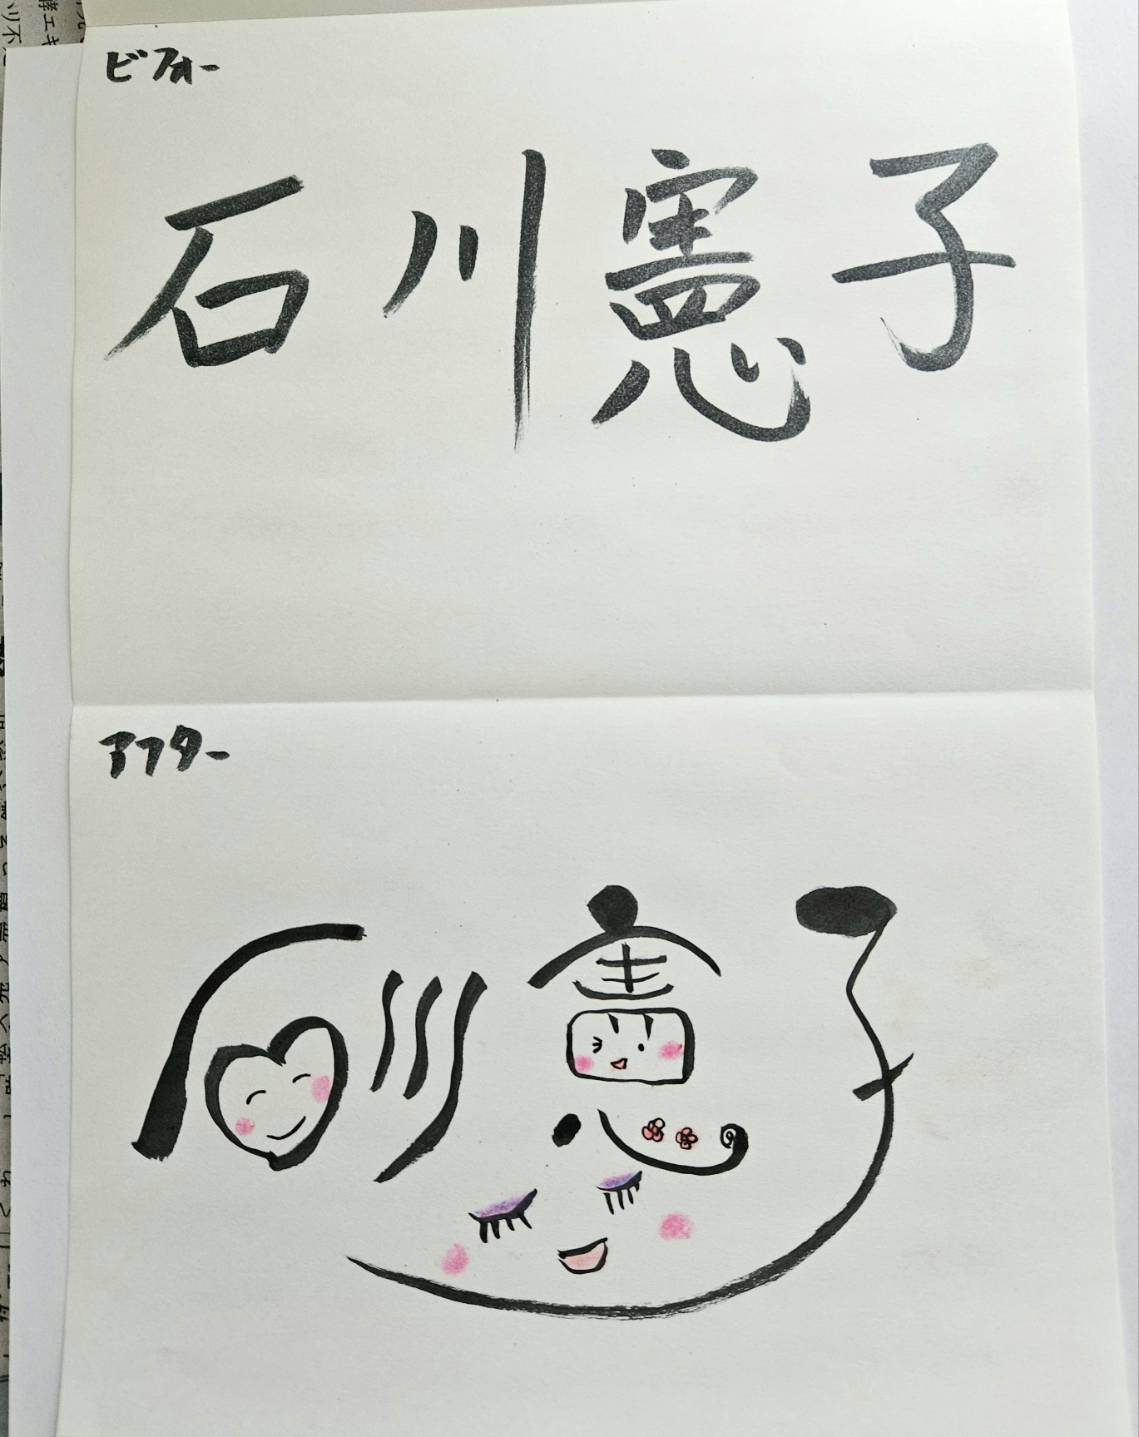 ビフォー
石川憲子
アフター
石川憲子